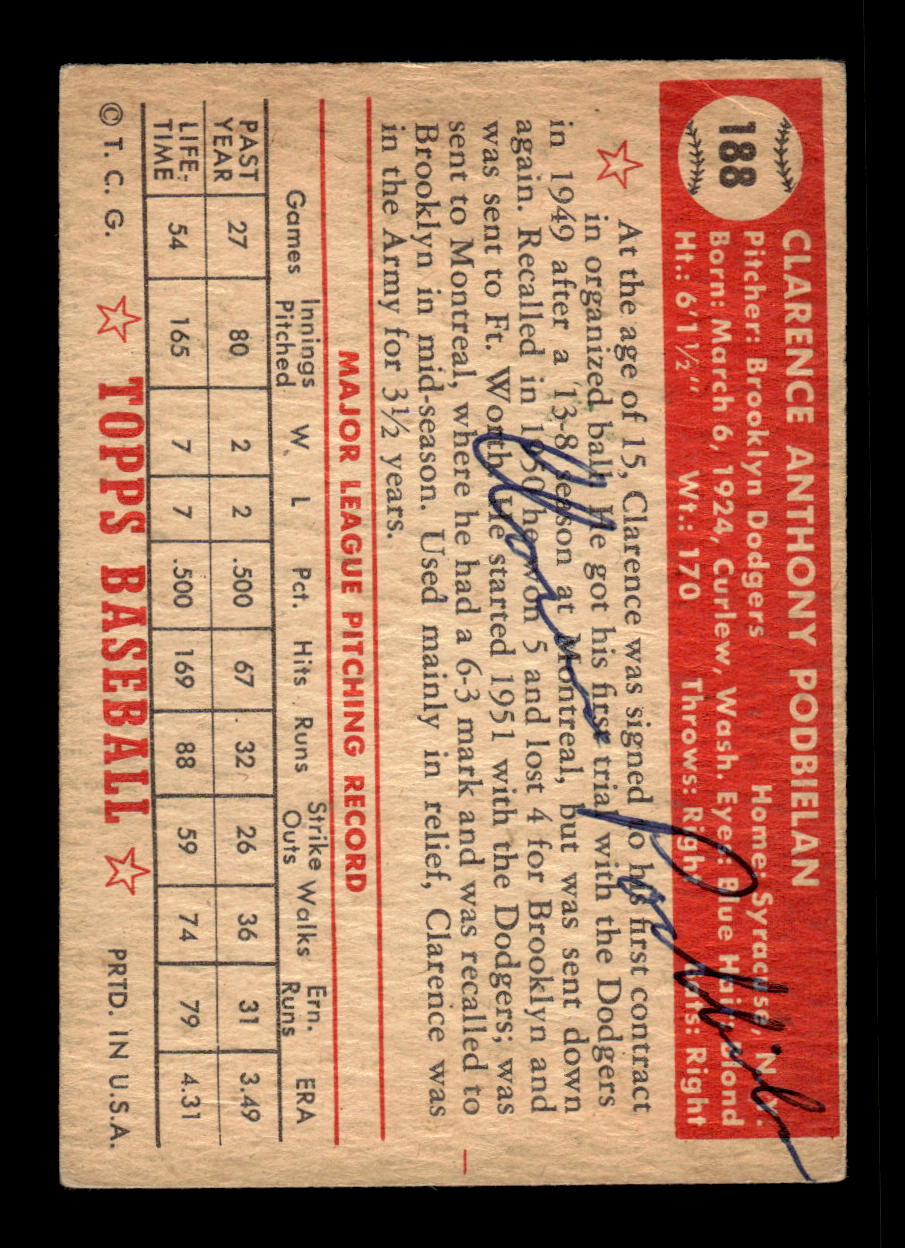 188
CLARENCE ANTHONY PODBIELAN
Pitcher: Brooklyn Dodgers Home: Syracuse, N. Y.
Born: March 6, 1924, Curlew, Wash. Eyes: Blue Hair: Blond
Ht.: 6'1½" Wt.: 170 Throws: Right Bats: Right
At the age of 15, Clarence was signed to his first contract
in organized ball. He got his first trial with the Dodgers
in 1949 after a 13-8 season at Montreal, but was sent down
again. Recalled in 1950 he won 5 and lost 4 for Brooklyn and
was sent to Ft. Worth. He started 1951 with the Dodgers; was
sent to Montreal, where he had a 6-3 mark and was recalled to
Brooklyn in mid-season. Used mainly in relief, Clarence was
in the Army for 3½ years.
Clarence Podbielan
MAJOR LEAGUE PITCHING RECORD
Games Innings Pitched W L Pct. Hits Runs Strike Outs Walks Ern. Runs ERA
PAST YEAR 27 80 2 2 .500 67 32 26 36 31 3.49
LIFE-TIME 54 165 7 7 .500 169 88 59 74 79 4.31
© T. C. G. TOPPS BASEBALL PRTD. IN U.S.A.